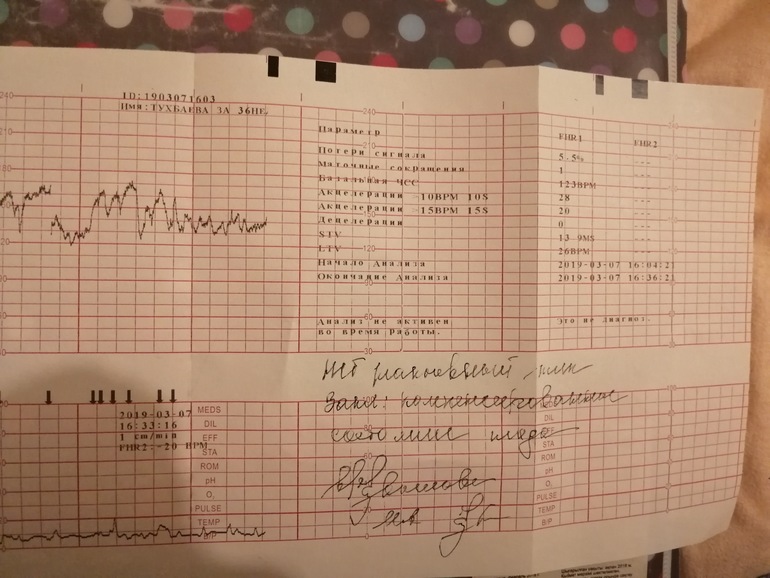 ID:1903071603
Имя:ТУХБАЕВА ЗА 36НЕ.
240
240
210
180
120
Параметр FHR1 FHR2
Потери сигнала 5.5% ---
Маточные сокращения 1 ---
Базальная ЧСС 123BPM ---
Акцелерации >10BPM 10S 28 ---
Акцелерации >15BPM 15S 20 ---
Децелерации 0 ---
STV 13.9MS ---
LTV 26BPM ---
Начало Анализа 2019-03-07 16:04:21
Окончание Анализа 2019-03-07 16:36:21
Анализ не активен это не диагноз.
во время работы.
30
Закл: компенсированное
состояние плода
2019-03-07
16:33:16
1 cm/min
FHR2:-20 BPM
MEDS
DIL
EFF
STA
ROM
pH
O₂
PULSE
TEMP
B/P
MEDS
DIL
EFF
STA
ROM
pH
O₂
PULSE
TEMP
B/P